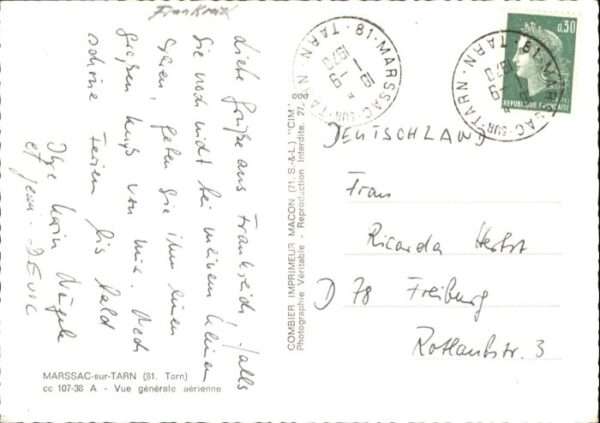 Frankreich
Liebe Grüße aus Frankreich! falls
Sie noch nicht bei meinem kleinen
waren, geben Sie ihm einen
großen Kuß von mir. Noch
schöne Ferien bis bald
Ihre Karin
et Jean
MARSSAC-sur-TARN (81. Tarn)
cc 107-38 A - Vue générale aérienne
COMBIER IMPRIMEUR MACON (71. S.-&-L.) "CIM"
Photographie Véritable - Reproduction Interdite.
81-MARSSAC-SUR-TARN TARN
81-MARSSAC-SUR-TARN TARN
0,30
REPUBLIQUE FRANÇAISE
DEUTSCHLAND
Frau
Ricarda Herbst
D 78 Freiburg
Rotlaubstr. 3